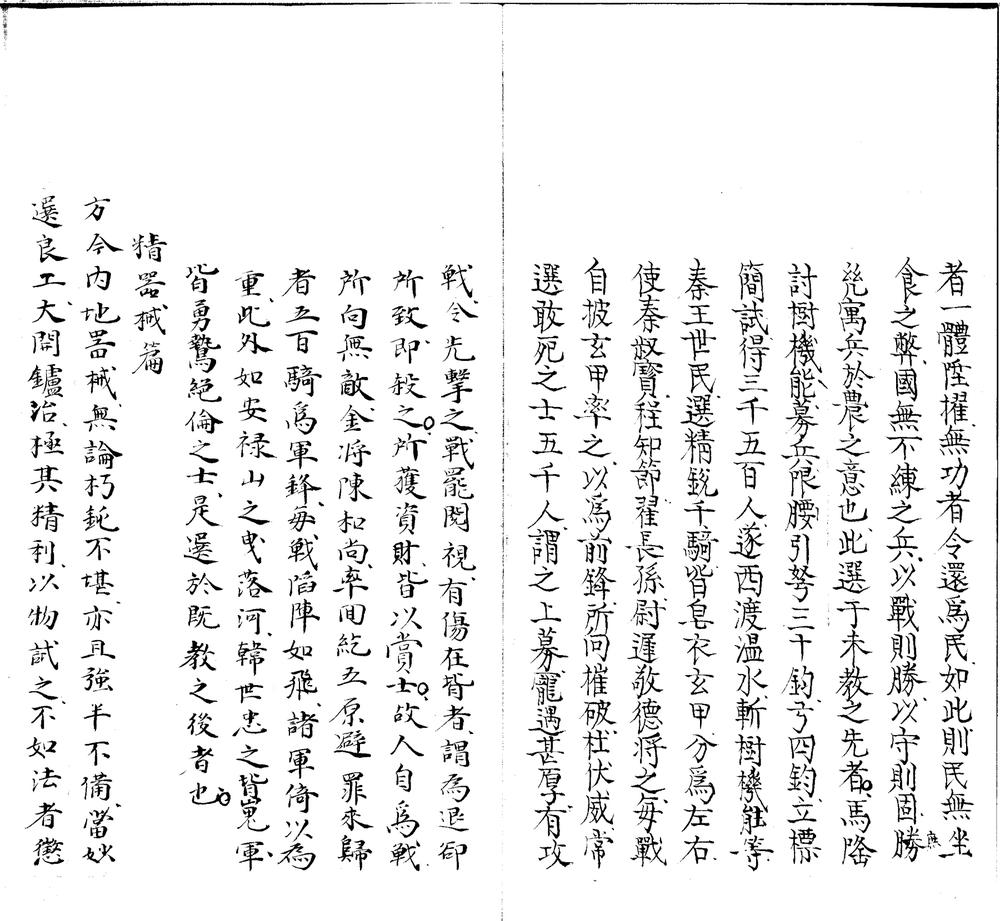 者一體陞擢無功者令還爲民如此則民無坐
食之弊國無不練之兵以戰則勝以守則固勝庶
㡬寓兵於農之意也此選于未教之先者馬隆
討樹機能募兵限腰引弩三十鈞弓四鈞立標
簡試得三千五百人遂西渡温水斬樹機能等
秦王世民選精鋭千騎皆皂衣玄甲分爲左右
使秦叔寶程知節翟長孫尉遲敬德將之每戰
自披玄甲率之以爲前鋒所向摧破杜伏威常
選敢死之士五千人謂之上募寵遇甚厚有攻
戰令先擊之戰罷閱視有傷在背者謂為退卻
所致即殺之所獲資財皆以賞士故人自爲戰
所向無敵金將陳和尚率囬紇五原避罪來歸
者五百騎爲軍鋒每戰陷陣如飛諸軍倚以為
重此外如安禄山之曳落河韓世忠之背嵬軍
皆勇鷙絕倫之士是選於既教之後者也
精器械篇
方今内地器械無論朽鈍不堪亦且強半不備當妙
選良工大開鑪冶極其精利以物試之不如法者懲